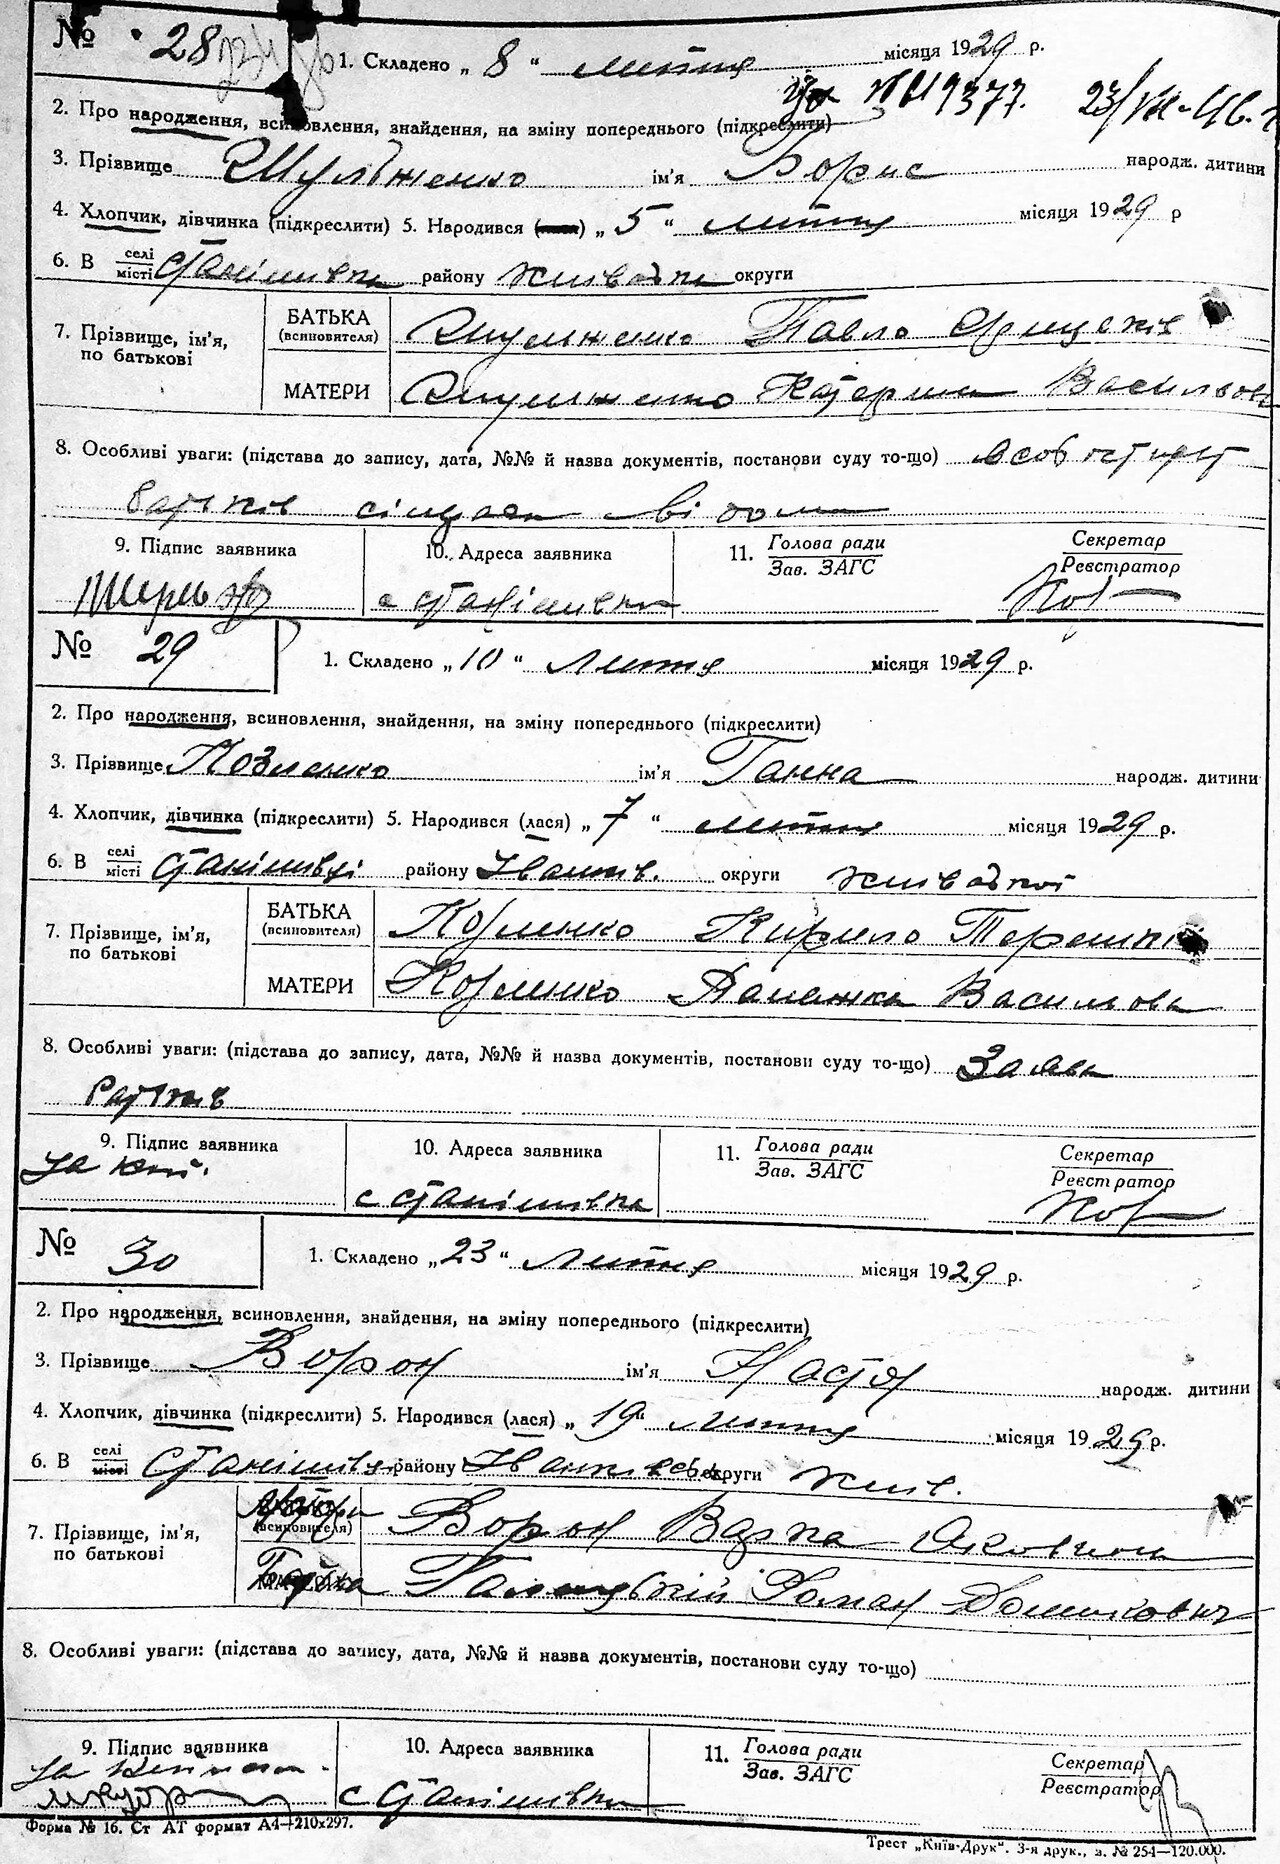 № 28 1. Складено „ 8 “ липня місяця 1929 р.
№ 119377. 23/VII-46.
2. Про народження, всиновлення, знайдення, на зміну попереднього (підкреслити)
3. Прізвище Шульженко ім'я Борис народж. дитини
4. Хлопчик, дівчинка (підкреслити) 5. Народився „ 5 “ липня місяця 1929 р
6. В селі місті Станішівка району округи
7. Прізвище, ім'я, по батькові
БАТЬКА (всиновителя) Шульженко Павло
МАТЕРИ Шульженко Катерина Васильов
8. Особливі уваги: (підстава до запису, дата, №№ й назва документів, постанови суду то-що)
батьків сільраді відома
9. Підпис заявника 10. Адреса заявника 11. Голова ради Зав. ЗАГС Секретар Реєстратор
с Станішивка
№ 29 1. Складено „ 10 “ Липня місяця 1929 р.
2. Про народження, всиновлення, знайдення, на зміну попереднього (підкреслити)
3. Прізвище Козленко ім'я Ганна народж. дитини
4. Хлопчик, дівчинка (підкреслити) 5. Народився (лася) „ 7 “ липня місяця 1929 р.
6. В селі місті Станішівці району Іванків. округи Київської
7. Прізвище, ім'я, по батькові
БАТЬКА (всиновителя) Козленко Кирило
МАТЕРИ Козленко Васильова
8. Особливі уваги: (підстава до запису, дата, №№ й назва документів, постанови суду то-що) Заява
батьків
9. Підпис заявника 10. Адреса заявника 11. Голова ради Зав. ЗАГС Секретар Реєстратор
с Станішивка
№ 30 1. Складено „ 23 “ Липня місяця 1929 р.
2. Про народження, всиновлення, знайдення, на зміну попереднього (підкреслити)
3. Прізвище Ворон ім'я Настя народж. дитини
4. Хлопчик, дівчинка (підкреслити) 5. Народився (лася) „ 19 “ липня місяця 1929 р.
6. В селі місті Станішівці району округи Київ.
7. Прізвище, ім'я, по батькові
Матери (всиновителя) Ворон Варка Яковна
Батька Роман
8. Особливі уваги: (підстава до запису, дата, №№ й назва документів, постанови суду то-що)
9. Підпис заявника 10. Адреса заявника 11. Голова ради Зав. ЗАГС Секретар Реєстратор
с Станішивка
Форма № 16. Ст АТ формат А4—210x297.
Трест „Київ-Друк“. 3-я друк., з. № 254—120.000.